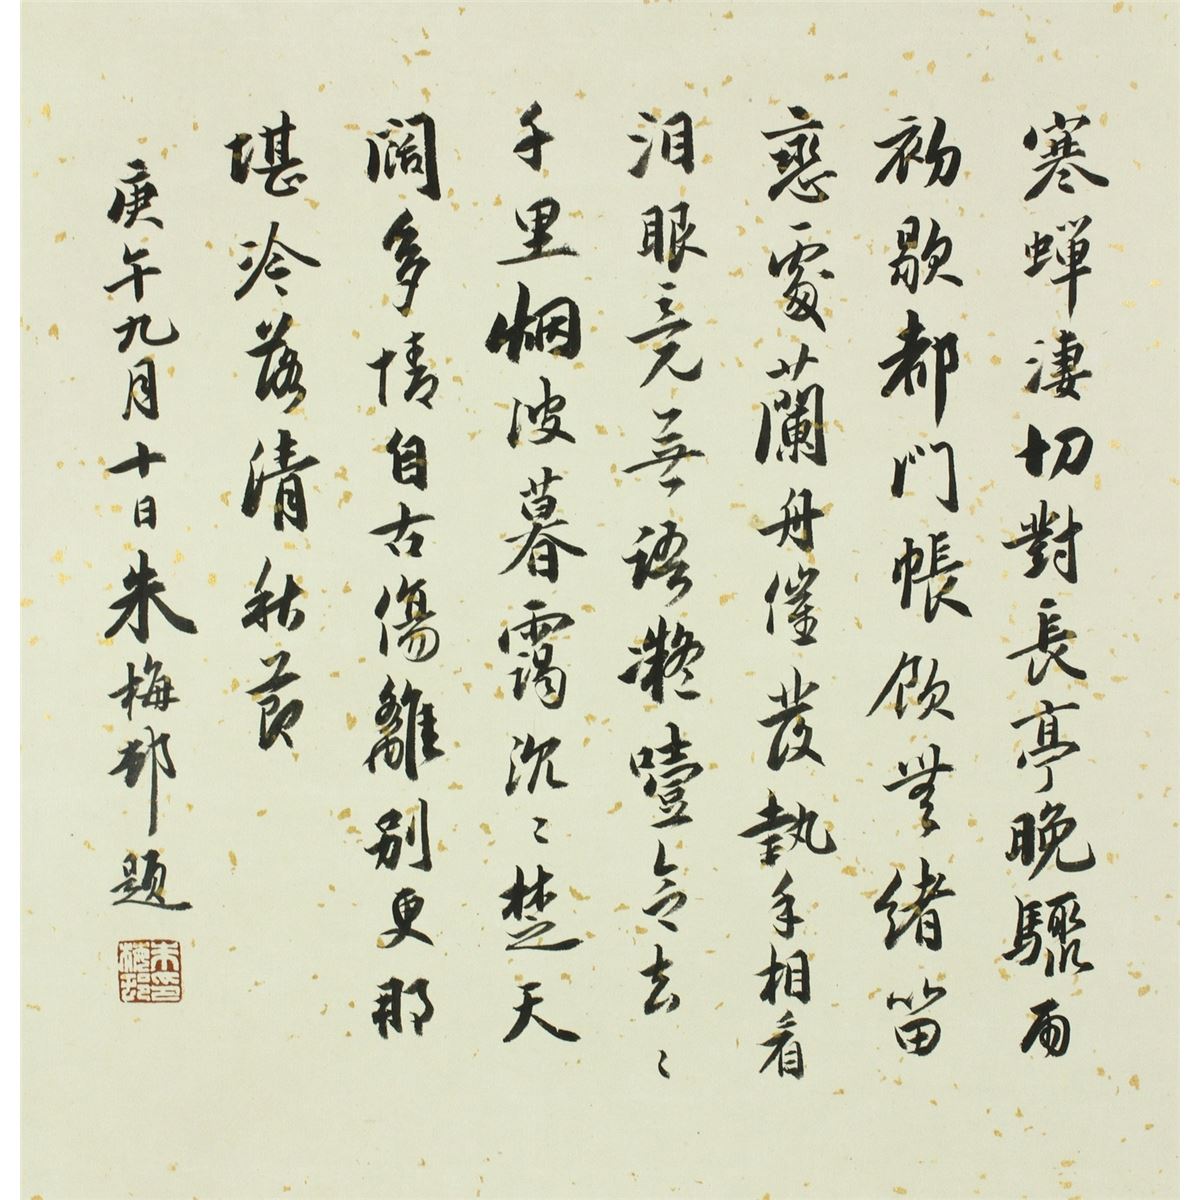 寒蟬淒切對長亭晚驟雨
初歇都門帳飲無緒留
戀處蘭舟催發執手相看
泪眼竟無語凝噎念去〻
千里烟波暮靄沉〻楚天
闊多情自古傷離別更那
堪冷落清秋節
庚午九月十日朱梅邨題
朱梅邨印